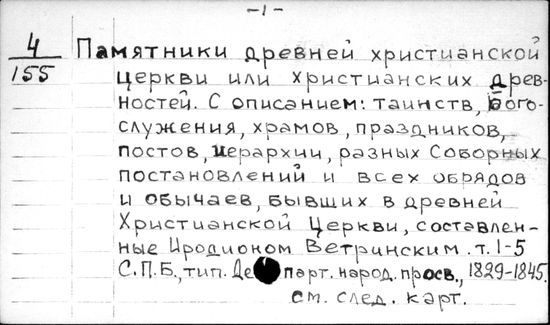 -1-
4/155
Памятники древней христианской
церкви или христианских древ-
ностей. С описанием: таинств, бого-
служения, храмов, праздников,
постов, иерархии, разных Соборных
постановлений и всех обрядов
и обычаев, бывших в древней
Христианской Церкви, составлен-
ные Иродионом Ветринским. т. 1-5
С.П.Б., тип. Департ. народ. просв., 1829-1845.
см. след. карт.